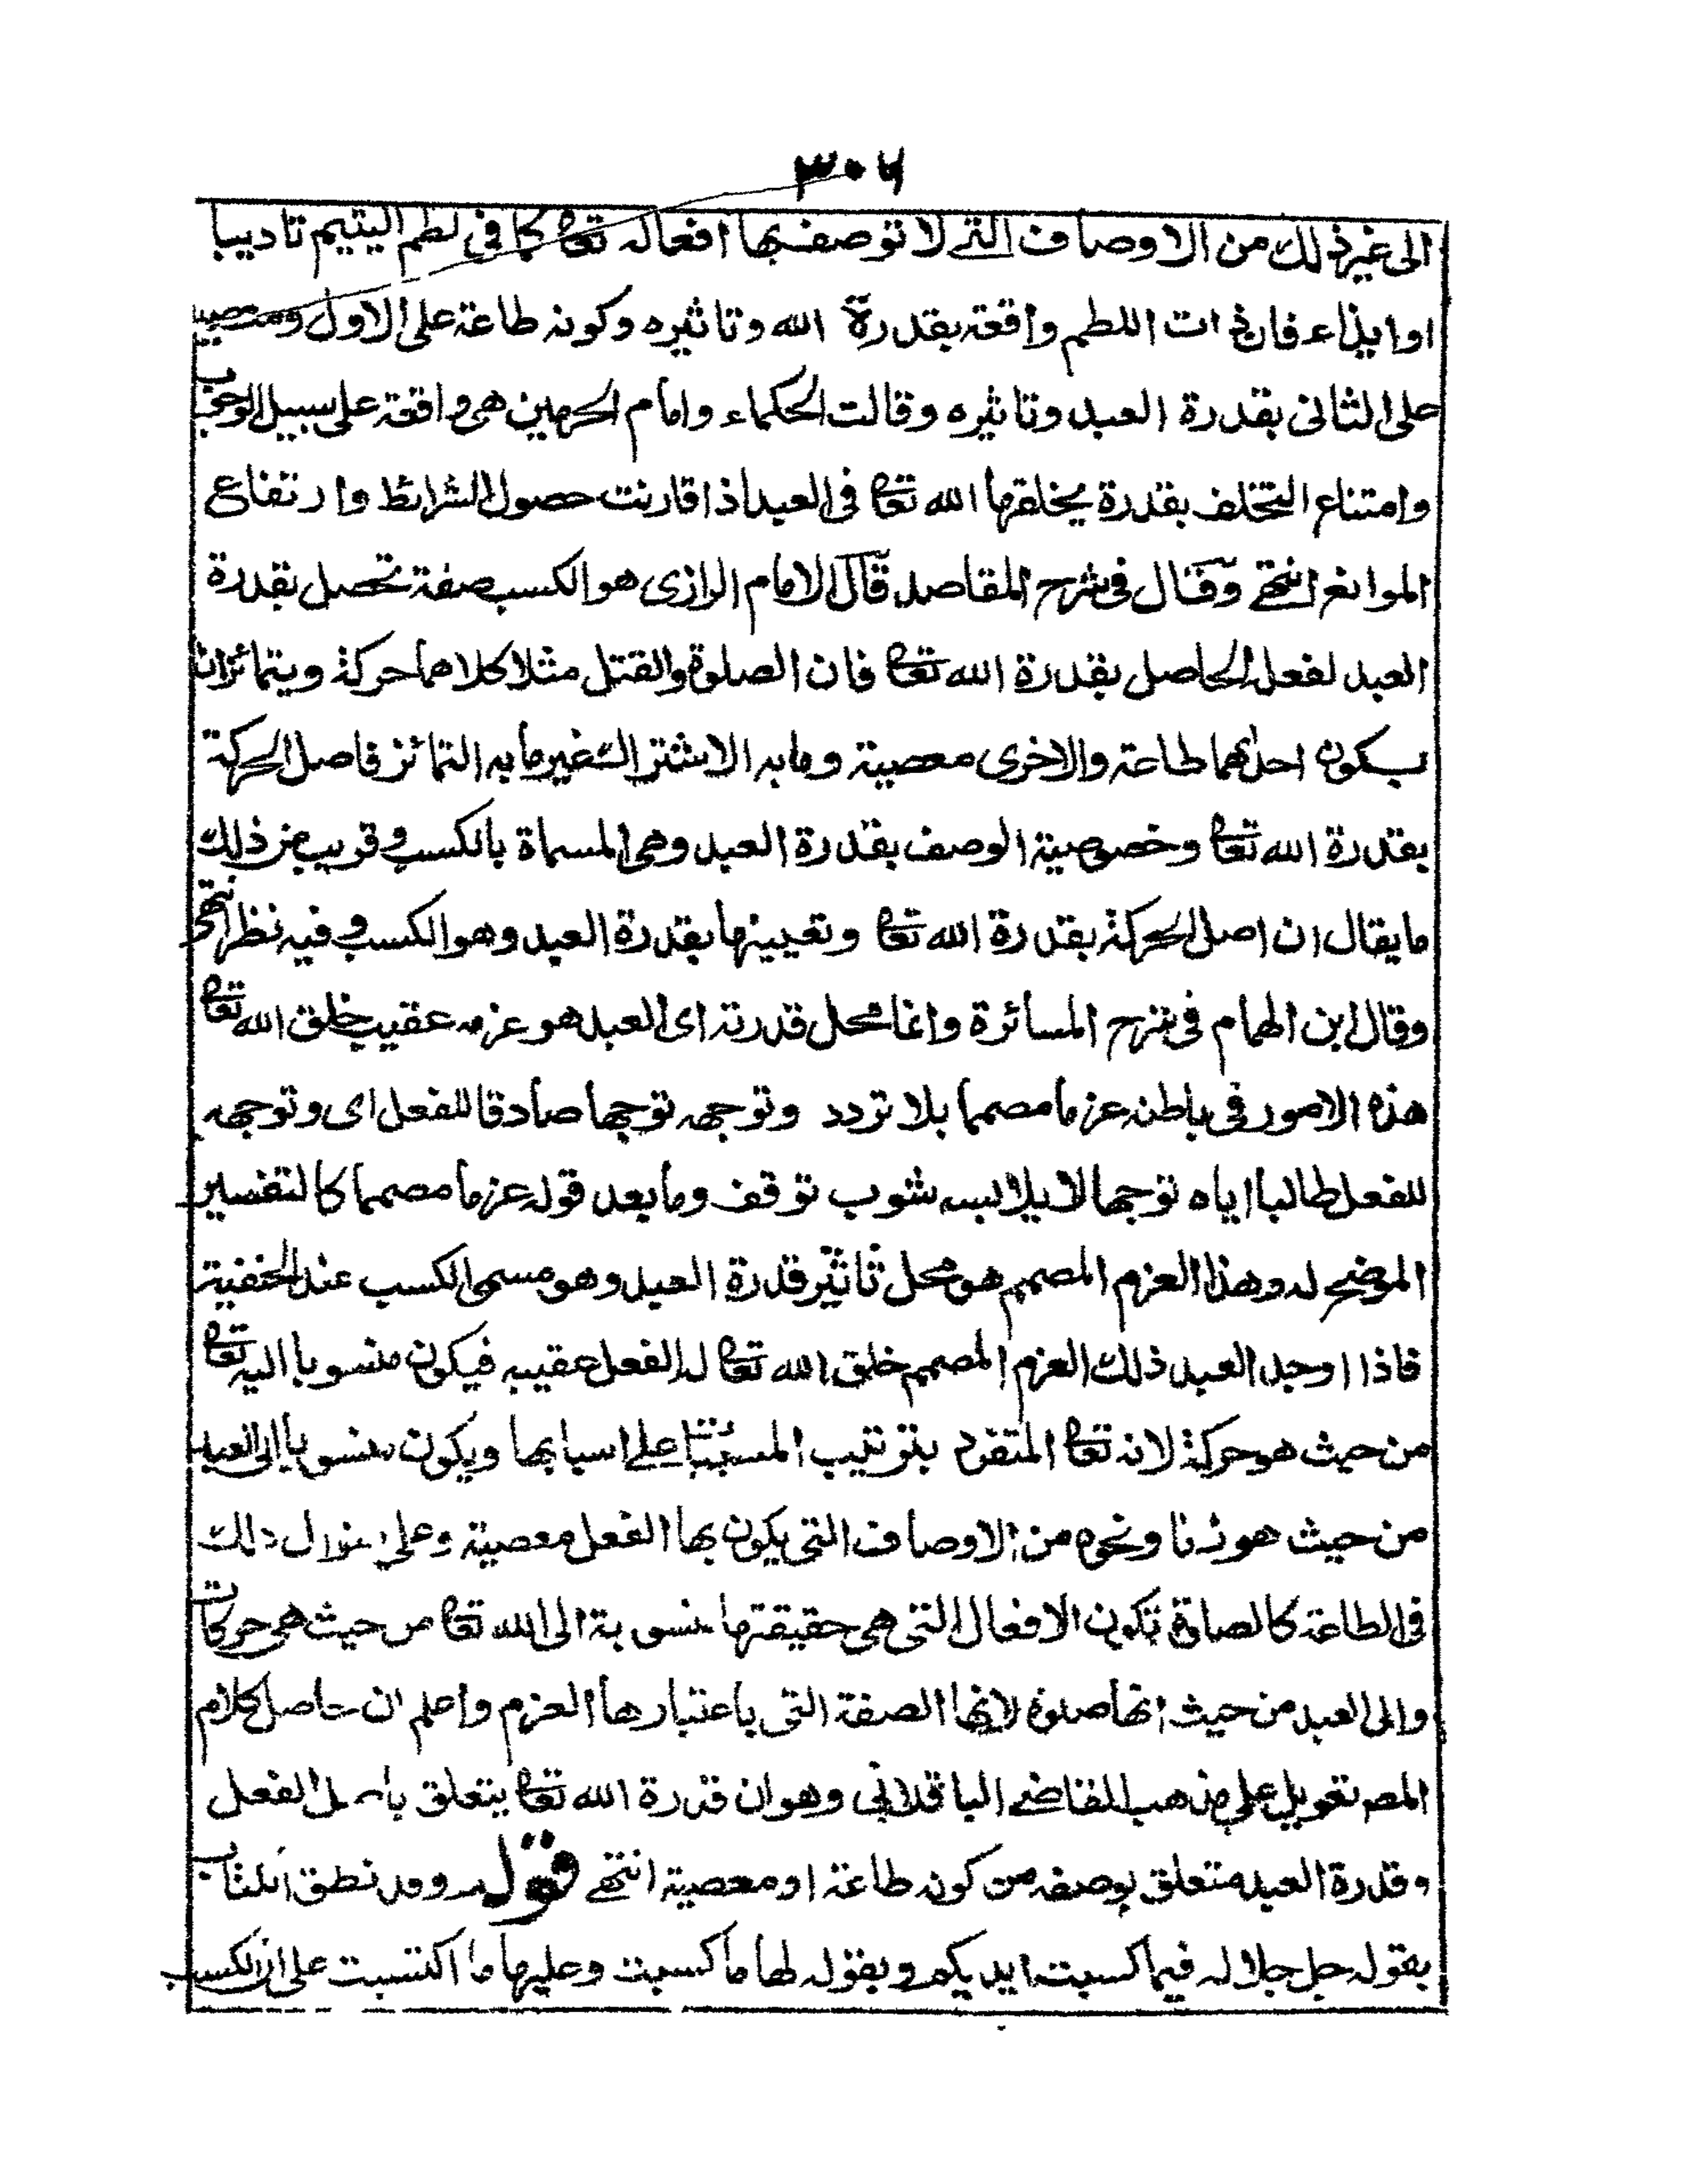 ٣٠٦
الى غير ذلك من الاوصاف التے لا توصف بها افعاله تعا كما فى لطم اليتيم تاديبا
او ايذاء فان ذات اللطم واقعة بقدرة الله وتاثيره وكونه طاعة على الاول ومعصية
على الثانى بقدرة العبد وتاثيره وقالت الحكماء وامام الحرمين هى واقعة على سبيل الوجوب
وامتناع التخلف بقدرة يخلقها الله تعا فى العبد اذا قارنت حصول الشرائط وارتفاع
الموانع انتهے وقال فى شرح المقاصد قال الامام الرازى هو الكسب صفة تحصل بقدرة
العبد لفعل الحاصل بقدرة الله تعا فان الصلوة والقتل مثلا كلاهما حركة ويتمائزان
بكون احدهما طاعة والاخرى معصية وما به الاشتراك غير ما به التمائز فاصل الحركة
بقدرة الله تعا وخصوصية الوصف بقدرة العبد وهى المسماة بالكسب وقريب من ذلك
ما يقال ان اصل الحركة بقدرة الله تعا وتعيينها بقدرة العبد وهو الكسب وفيه نظر انتهى
وقال ابن الهمام فى شرح المسائرة وانما محل قدرته اى العبد هو عزمه عقيب خلق الله تعا
هذه الامور فى باطنه عزما مصمما بلا تردد وتوجهه توجها صادقا للفعل اى وتوجهه
للفعل طالبا اياه توجها لا يلابسه شوب توقف وما بعد قوله عزما مصمما كالتفسير
الموضح له وهذا العزم المصمم هو محل تاثير قدرة العبد وهو مسمى الكسب عند الحنفية
فاذا اوجد العبد ذلك العزم المصمم خلق الله تعا له الفعل عقيبه فيكون منسوبا اليه تعا
من حيث هو حركة لانه تعا المتفرد بترتيب المسببات على اسبابها ويكون منسوبا الى العبد
من حيث هو زنا ونحوه من الاوصاف التى يكون بها الفعل معصية وعلى منوال ذلك
فى الطاعة كالصلوة تكون الافعال التى هى حقيقتها منسوبة الى الله تعا من حيث هى حركات
والى العبد من حيث انها صلوة لانها الصفة التى باعتبارها العزم واعلم ان حاصل كلام
المصـ تعويل على مذهب القاضے الباقلانى وهو ان قدرة الله تعا يتعلق باصل الفعل
وقدرة العبد متعلق بوصفه من كونه طاعة او معصية انتهے قوله وقد نطق الكتاب
بقوله جل جلاله فبما كسبت ايديكم وبقوله لها ما كسبت وعليها ما اكتسبت على ان الكسب